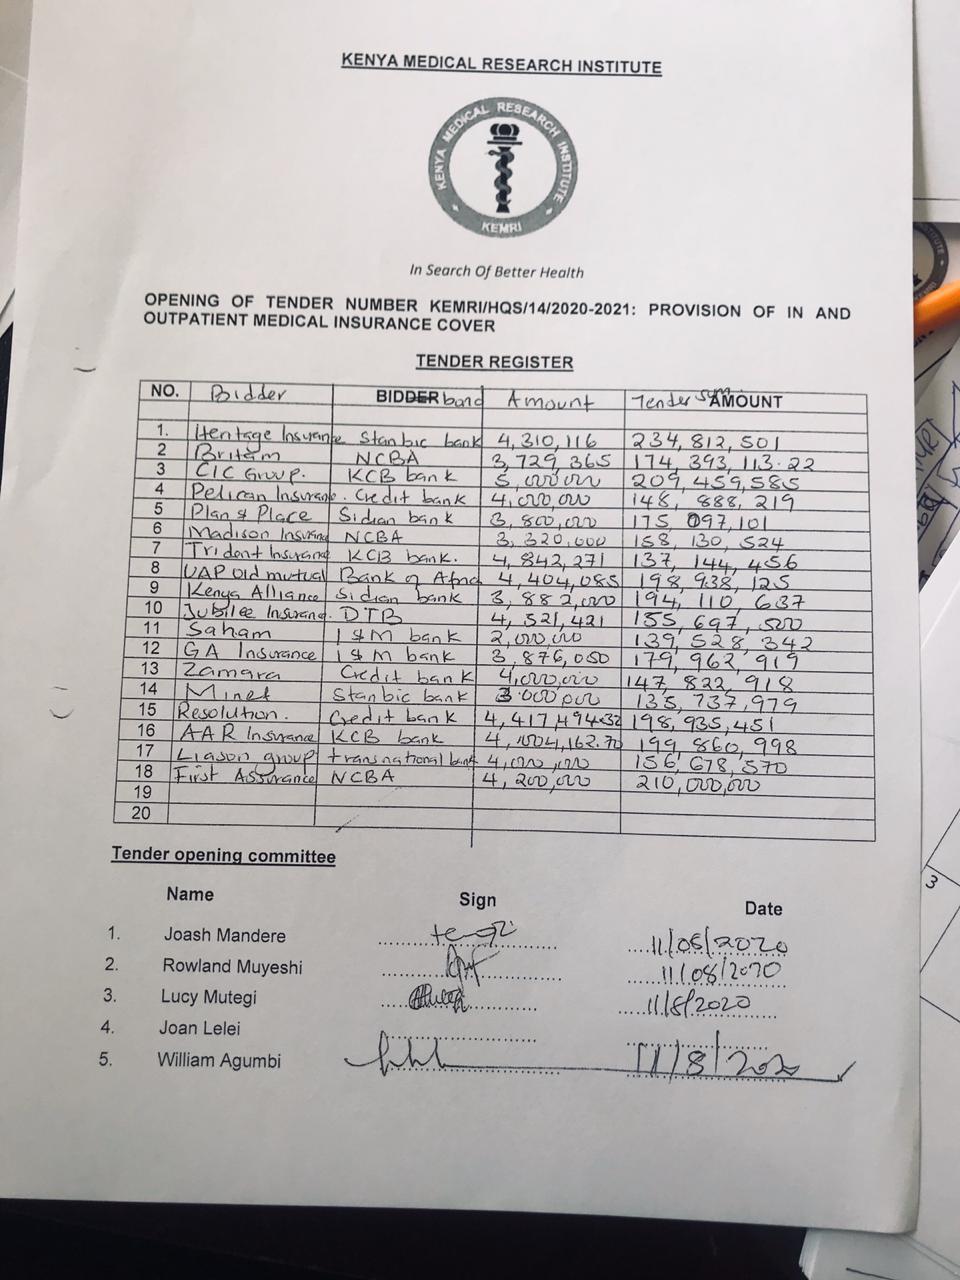 KENYA MEDICAL RESEARCH INSTITUTE
KENYA MEDICAL RESEARCH INSTITUTE
KEMRI
In Search Of Better Health
OPENING OF TENDER NUMBER KEMRI/HQS/14/2020-2021: PROVISION OF IN AND
OUTPATIENT MEDICAL INSURANCE COVER
TENDER REGISTER
NO. Bidder BIDDER bond Amount Tender sum AMOUNT
1. Heritage Insurance Stanbic bank 4,310,116 234,812,501
2 Britam NCBA 3,729,365 174,393,113.22
3 CIC Group. KCB bank 5,000,000 209,459,585
4 Pelican Insurance. Credit bank 4,000,000 148,888,219
5 Plan & Place Sidian bank 3,800,000 175,097,101
6 Madison Insurance NCBA 3,320,000 158,130,524
7 Trident Insurance KCB bank. 4,842,271 137,144,456
8 UAP Old mutual Bank of Africa 4,404,085 198,938,125
9 Kenya Alliance Sidian bank 3,882,000 194,110,637
10 Jubilee Insurance. DTB 4,521,421 155,697,500
11 Saham I & M bank 2,000,000 139,528,342
12 GA Insurance I & M bank 3,876,050 179,962,919
13 Zamara Credit bank 4,000,000 147,822,918
14 Minet Stanbic bank 3.000,000 135,737,979
15 Resolution. Credit bank 4,417,494.32 198,935,451
16 AAR Insurance KCB bank 199,860,998
17 Liason group transnational bank 4,000,000 156,678,570
18 First Assurance NCBA 4,200,000 210,000,000
19
20
Tender opening committee
Name Sign Date
1. Joash Mandere 11/08/2020
2. Rowland Muyeshi 11/08/2020
3. Lucy Mutegi 11/8/2020
4. Joan Lelei
5. William Agumbi 11/8/2020
3